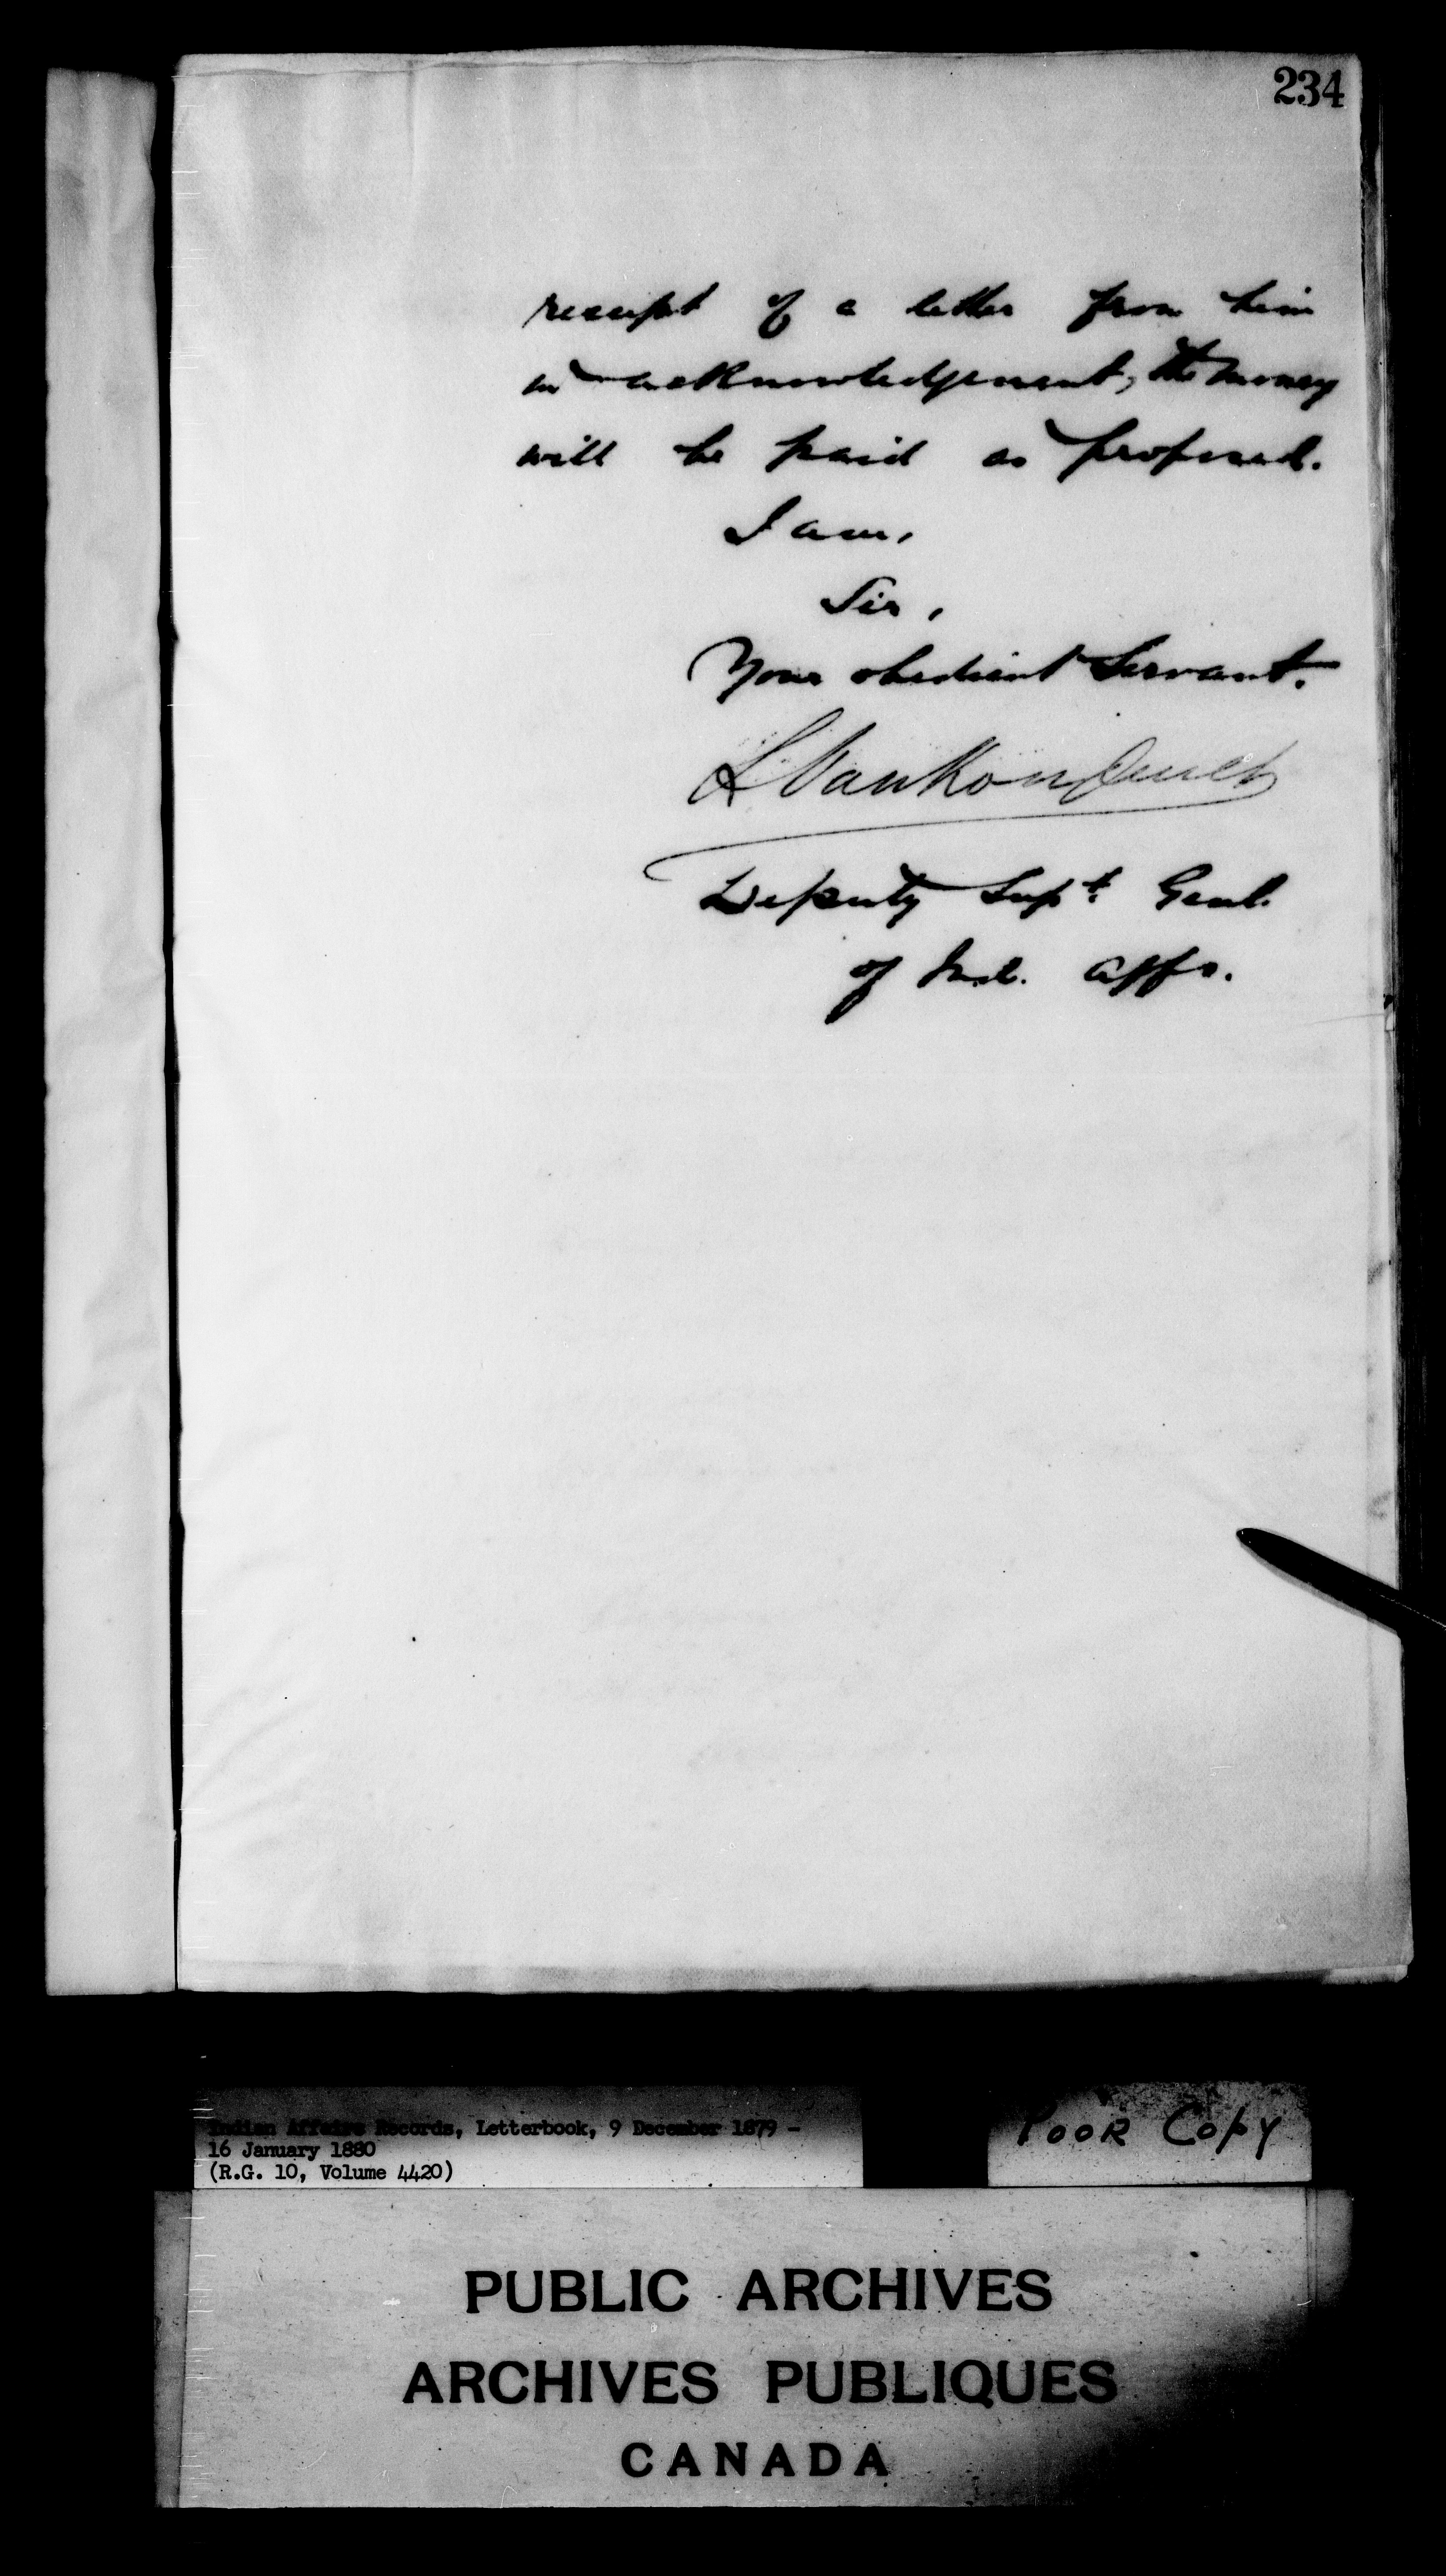 234
receipt of a letter from him
in acknowledgement, the money
will be paid as proposed.
I am,
Sir,
Your obedient Servant.
L Vankoughnet
Deputy Supt. Genl.
of Ind. Affs.
Indian Affairs Records, Letterbook, 9 December 1879 -
16 January 1880
(R.G. 10, Volume 4420)
POOR COPY
PUBLIC ARCHIVES
ARCHIVES PUBLIQUES
CANADA